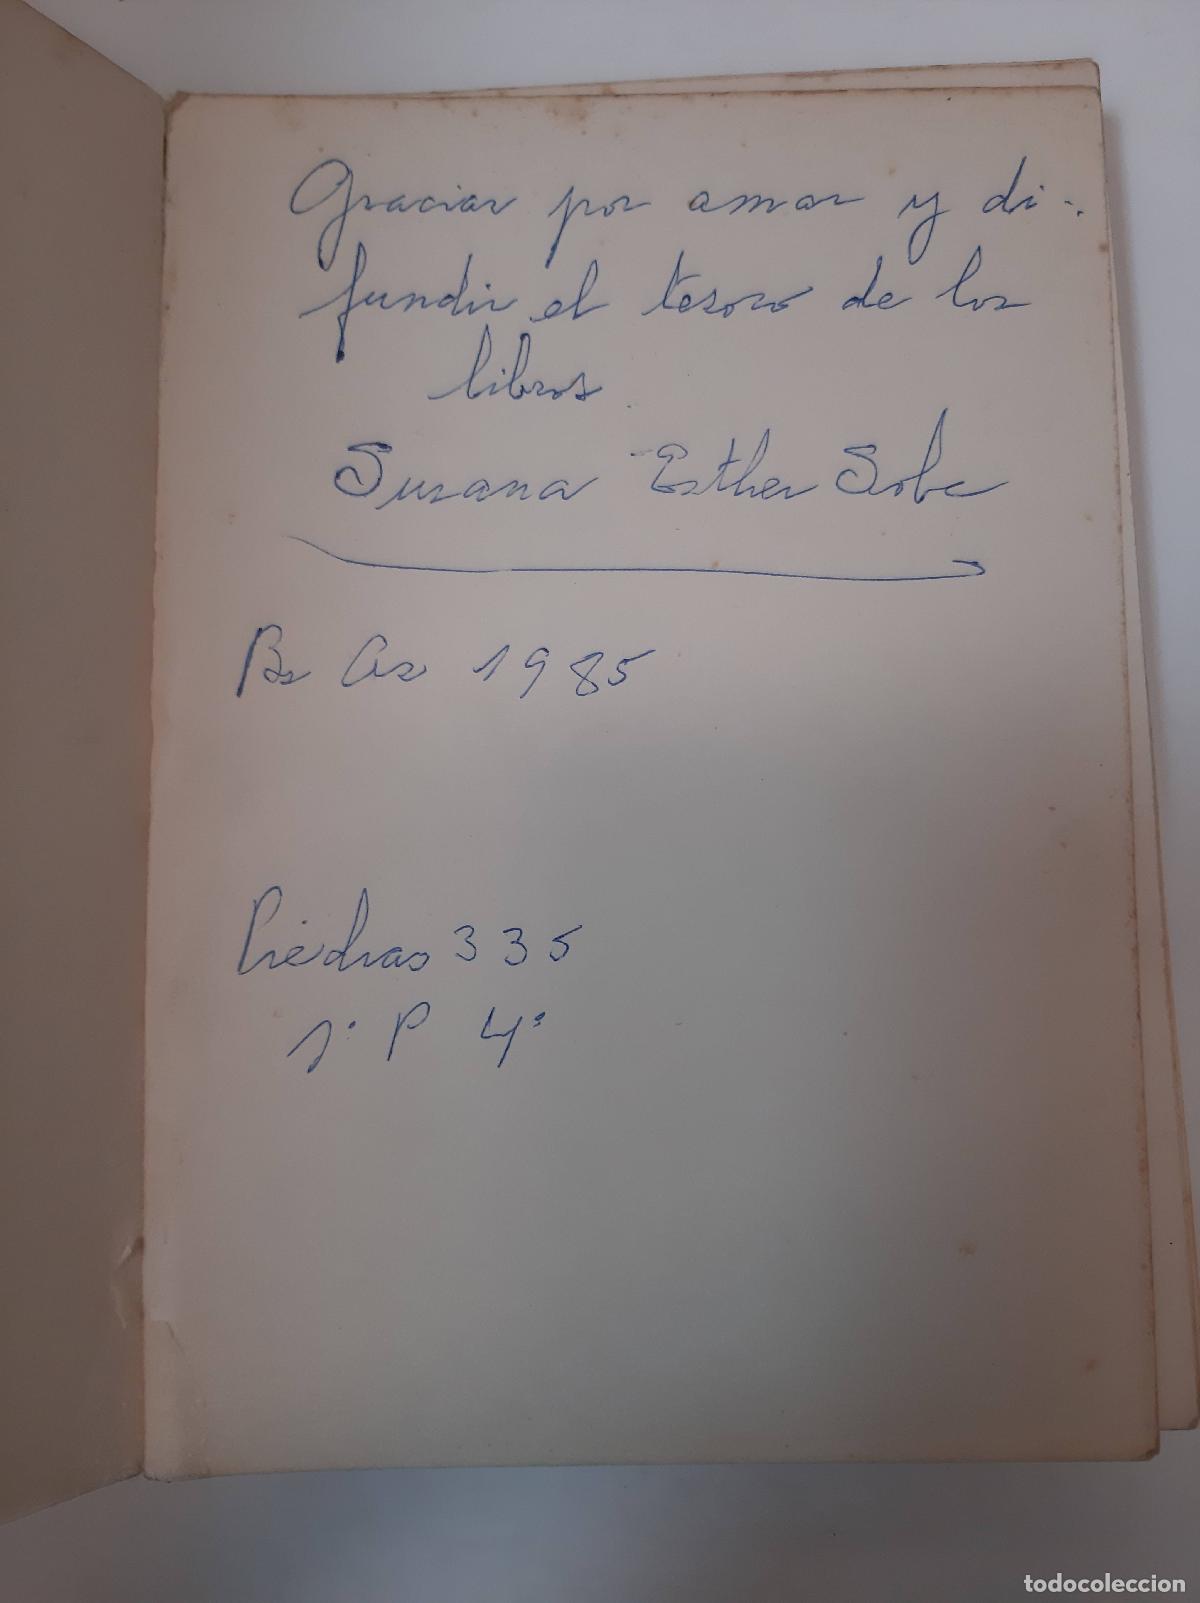 Gracias por amar y di-
fundir el tesoro de los
libros
Susana Esther Soba
Bs As 1985
Piedras 335
1º P 4º
todocoleccion